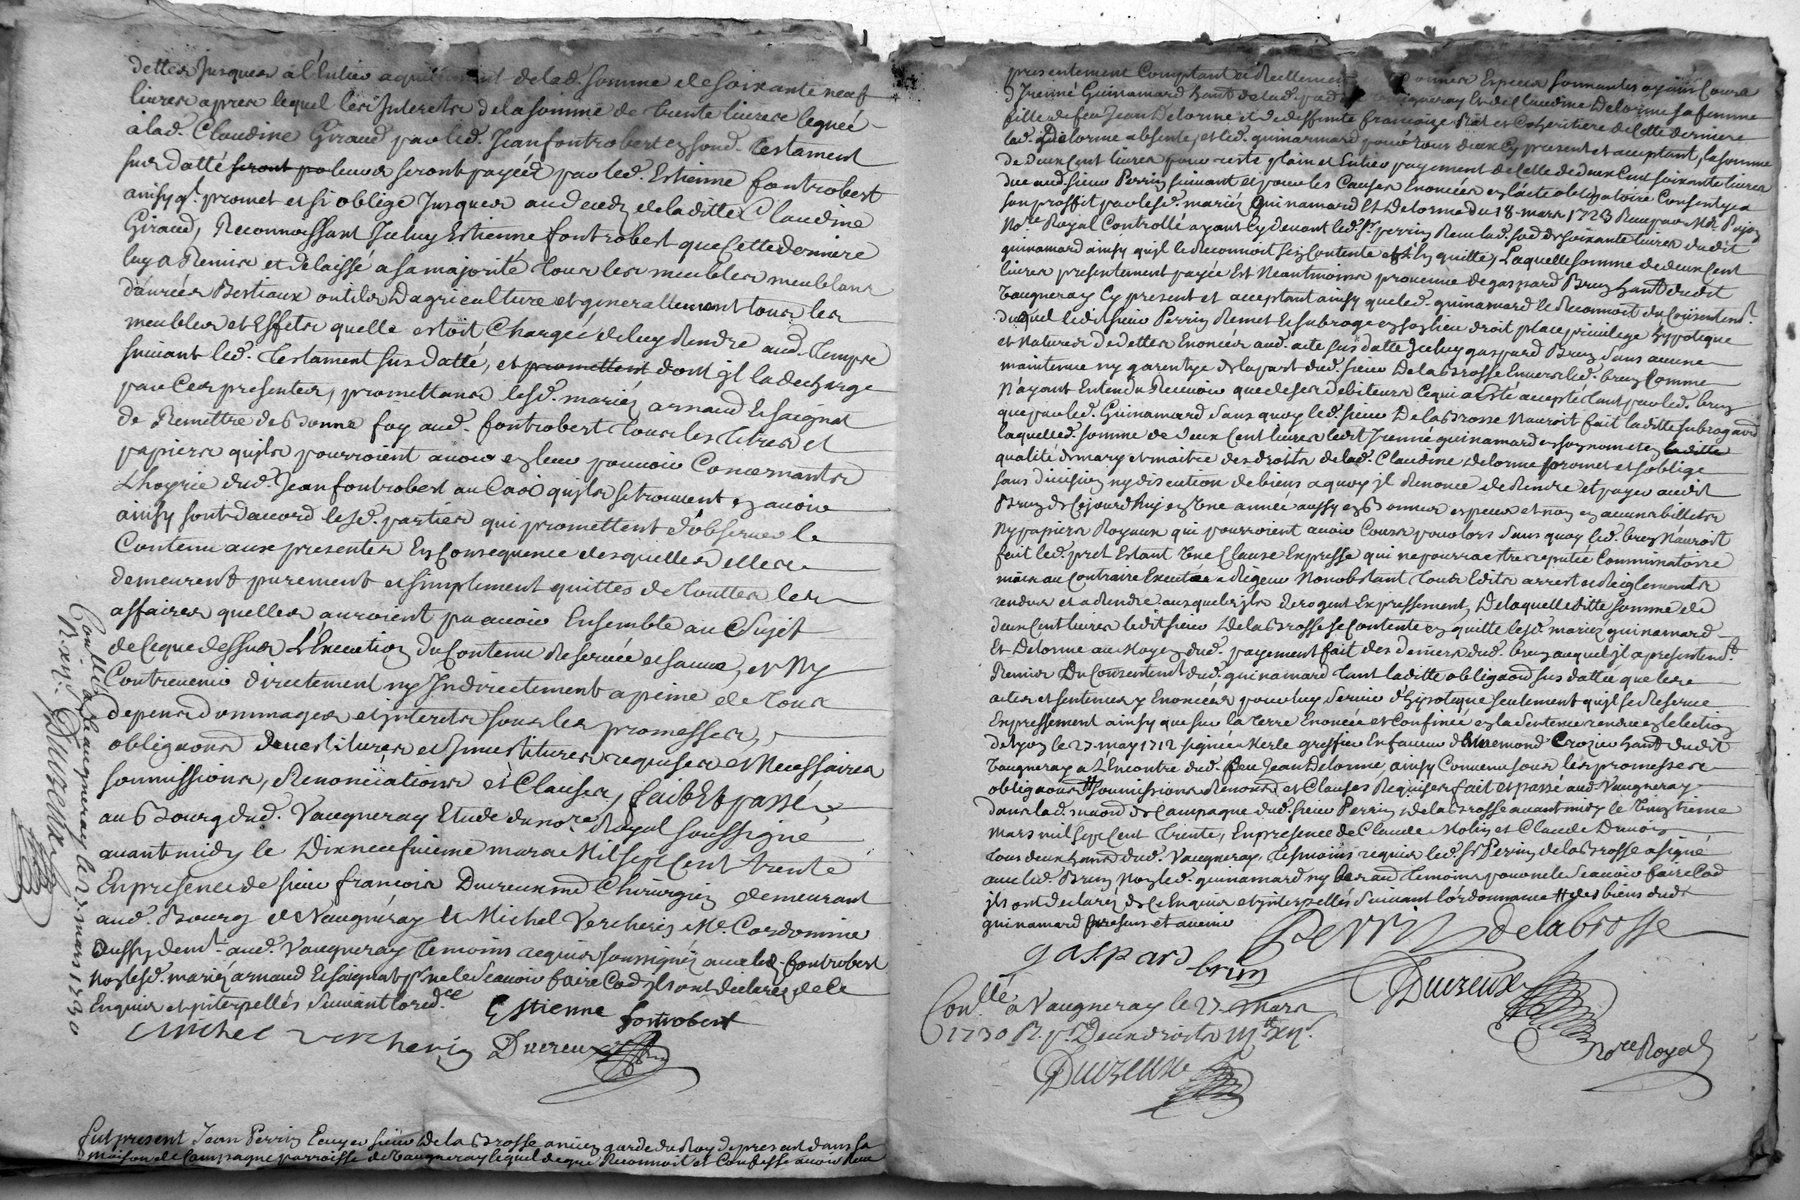 dettes Jusques à l'Entier de lad. somme de soixante neuf
livres apres lequel les Interets de la somme de trente livres leguée
à lad. Claudine Giraud par led. Jean fontrobert en son d. Testament
sus datté seront payées par led. Estienne fontrobert
ainsy qt. promet et si oblige Jusques au deced de laditte Claudine
Giraud, Reconnoissant Iceluy Estienne fontrobert que cette derniere
luy a Remis et delaissé a sa majorité tous les meubles meublans
danrées Bestiaux outils D'agriculture et generallement tous les
meubles et Effets quelle estoit Chargée de luy Rendre aud. Temps
suivant led. Testament sus datté, et promettent dont il la decharge
par Ces presentes, promettans lesd. mariez arnaud et saignat
de Remettre de Bonne foy aud. fontrobert tous les titres et
papiers quils pourroient avoir en leur pouvoir Concernants
L'hoyrie dud. Jean fontrobert au Cas quils se trouvent en avoir
ainsy sont d'acord lesd. parties qui promettent d'observer le
Contenu aux presentes En Consequence desquelles elles
demeurent purement et simplement quittes de touttes les
affaires quelles auroient pu avoir Ensemble au Sujet
de Ceque dessus L'Execution du Contenu Reservée et sauve, et Ny
Contrevenir directement ny Indirectement a peine de tous
depens dommages et interets sous les promesses,
obligaons devestitures et Investitures requises et Necessaires
soumissions, Renonciations et Clauses, fait Et passé
au Bourg dud. Vaugneray Etude du nore. Royal soussigné
avant midy le Dixneufvieme mars Mil sept Cent trente
En presence de sieur françois Ducreux md Chirurgien demeurant
aud. Bourg de Vaugneray et Michel Vercherin Me. Cordonnier
aussy demt. aud. Vaugneray temoins requis soussignez avec led. fontrobert
Non lesd. mariez arnaud et saignat pr. ne le Scavoir faire Cod. ils ont declaré de Ce
Enquis et interpellés Suivant lord.ce
Estienne fontrobert
Michel Vercherin Ducreux
Conllé à Vaugneray le 27 mars 1730
Ducreux
fut present Jean Perrin Ecuyer sieur De la Brosse ancien garde du Roy De present dans sa
maison de Campagne parroisse de Vaugneray lequel de gré Reconnoit et Confesse avoir Receu
presentement Comptant et Reellement Especes sonnantes ayant Cours
D'Irenné Guinamard hant de lad. Vaugneray Et de Claudine Delorme sa femme
fille de feu Jean Delorme et de deffunte françoize et Coheritiere de Cette derniere
lad. Delorme absente, et led. guinamard pour tous deux Cy present et acceptant, la somme
de deux Cent livres pour reste plain et Entier payement de Celle de deux Cent soixante livres
due aud. sieur Perrin suivant et pour les Causes Enoncées en l'acte obligatoire Consenty a
son proffit par lesd. mariez Guinamard Et Delorme du 18. mars 1723 Receu par Me.
Nore. Royal Controllé ayant Cy devant led. Sr. perrin Receu lad. so.e de soixante livres dudit
guinamard ainsy quil le Reconnoit s'en Contente et l'en quitte, Laquelle somme de deux Cent
livres presentement payée Est Neantmoins provenue de gaspard Brun hant. dudit
Vaugneray Cy present et acceptant ainsy que led. guinamard le Reconnoit du Consentemt.
Duquel ledit sieur Perrin Remet et subroge en son lieu droit place privilege hypoteque
et Nature de dettes Enoncées aud. acte sus datté Iceluy gaspard Brun sans aucune
maintenue ny garentye de la part dud. sieur De la Brosse Envers led. brun Comme
N'ayant Entendu Recevoir que de ses debiteurs Ce qui a Esté accepté tant par led. brun
que par led. Guinamard sans quoy led. sieur De la Brosse N'auroit fait laditte subrogaon
laquelle d. somme de deux Cent livres ledt Irenné guinamard en son nom et en laditte
qualité de mary et maitre des droits de lad. Claudine Delorme promet et s'oblige
sans division ny discution de biens a quoy il Renonce de Rendre et payer audit
Brun de Cejourd'huy en Une année aussy en Bonnes especes et non en aucuns billets
Ny papiers Royaux qui pourroient avoir Cours pour lors sans quoy led. brun N'auroit
fait led. pret Estant Une Clause Expresse qui ne pourra etre reputée Comminatoire
mais au Contraire Executée a Rigueur Nonobstant tous Edits arrest et Reiglements
rendus et a Rendre ausquels ils derogent Expressement, De laquelle ditte somme de
deux Cent livres ledit sieur De la Brosse se Contente en quitte lesd. mariez guinamard
Et Delorme au moyen dud. payement fait des deniers dud. brun auquel il a presentemt.
Remis Du Consentemt dud. guinamard tant laditte obligaon sus dattée que les
actes et sentences y Enoncées pour luy servir d'hypoteque seulement quil se Reserve
Expressement ainsy que sur la terre Enoncée et Confinée en la Sentence rendue en l'election
de lyon le 27. may 1712 signée Merle greffier En faveur d'Annemond Crozier hant. dudit
Vaugneray a L'Encontre dud. feu Jean Delorme, ainsy Convenu sous les promesses
obligaons # soumissions Renons. et Clauses Requises fait et passé aud. Vaugneray
dans lad. maison de Campagne dud. sieur Perrin De la Brosse avant midy le
mars mil sept Cent trente, En presence de Claude Molin et Claude
tous deux hants dud. Vaugneray, temoins requis led. Sr Perrin de la Brosse a signé
avec led. Brun Non led. guinamard ny lesd. temoins pour ne le Scavoir faire Cod.
ils ont declaré de Ce Enquis et interpellés Suivant l'ordonnance # des biens dudt
guinamard presens et avenir
Perrin de la brosse
gaspard brun
Ducreux
Nore Royal
Conllé à Vaugneray le 27. Mars
1730 R. pr. Deux droits
Ducreux